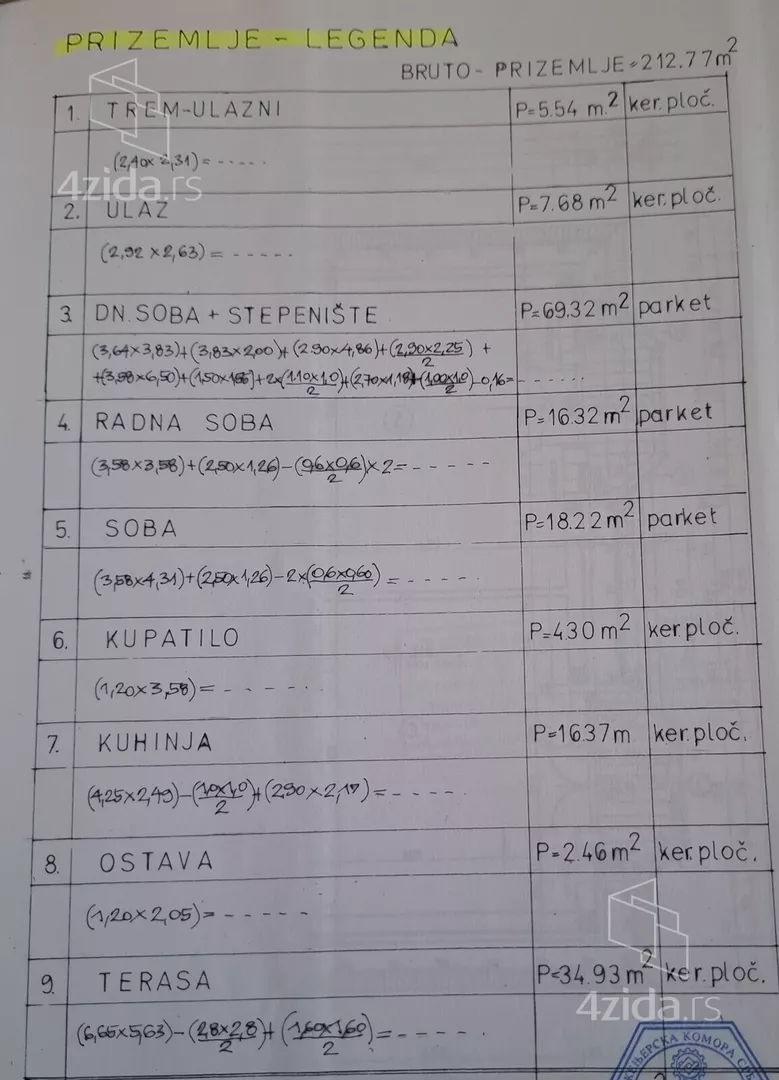 PRIZEMLJE - LEGENDA
BRUTO - PRIZEMLJE = 212.77m²
1. TREM-ULAZNI P=5.54 m.² ker. ploč.
(2,40 x 2,31) = - - - - -
4zida.rs
2. ULAZ P=7.68 m² ker. ploč.
(2,92 x 2,63) = - - - - -
3. DN. SOBA + STEPENIŠTE P=69.32 m² parket
(3,64x3,83)+(3,83x2,00)+(2.90x4,86)+(2,90x2,25)/2 +
+(3,98x6,50)+(1,50x1,86)+2x(1.10x1,0)/2+(2,70x1,18)+(1,00x1,0)/2-0,16= - - - - - -
4. RADNA SOBA P=16.32 m² parket
(3,58x3,58)+(2,50x1,26)-(0,6x0,6)/2 x2= - - - - -
5. SOBA P=18.22 m² parket
(3,58x4,31)+(2,50x1,26)-2x(0,6x0,60)/2 = - - - - -
6. KUPATILO P=4.30 m² ker. ploč.
(1,20x3,58)= - - - - -
7. KUHINJA P=16.37m ker. ploč.
(4,25x2,49)-(1,0x1,0)/2+(2,90x2,17)= - - - -
8. OSTAVA P=2.46 m² ker. ploč.
(1,20x2,05)= - - - - -
9. TERASA P=34.93 m² ker. ploč.
(6,65x5,63)-(2,8x2,8)/2+(1,60x1,60)/2= - - - - -
4zida.rs
КОМОРА